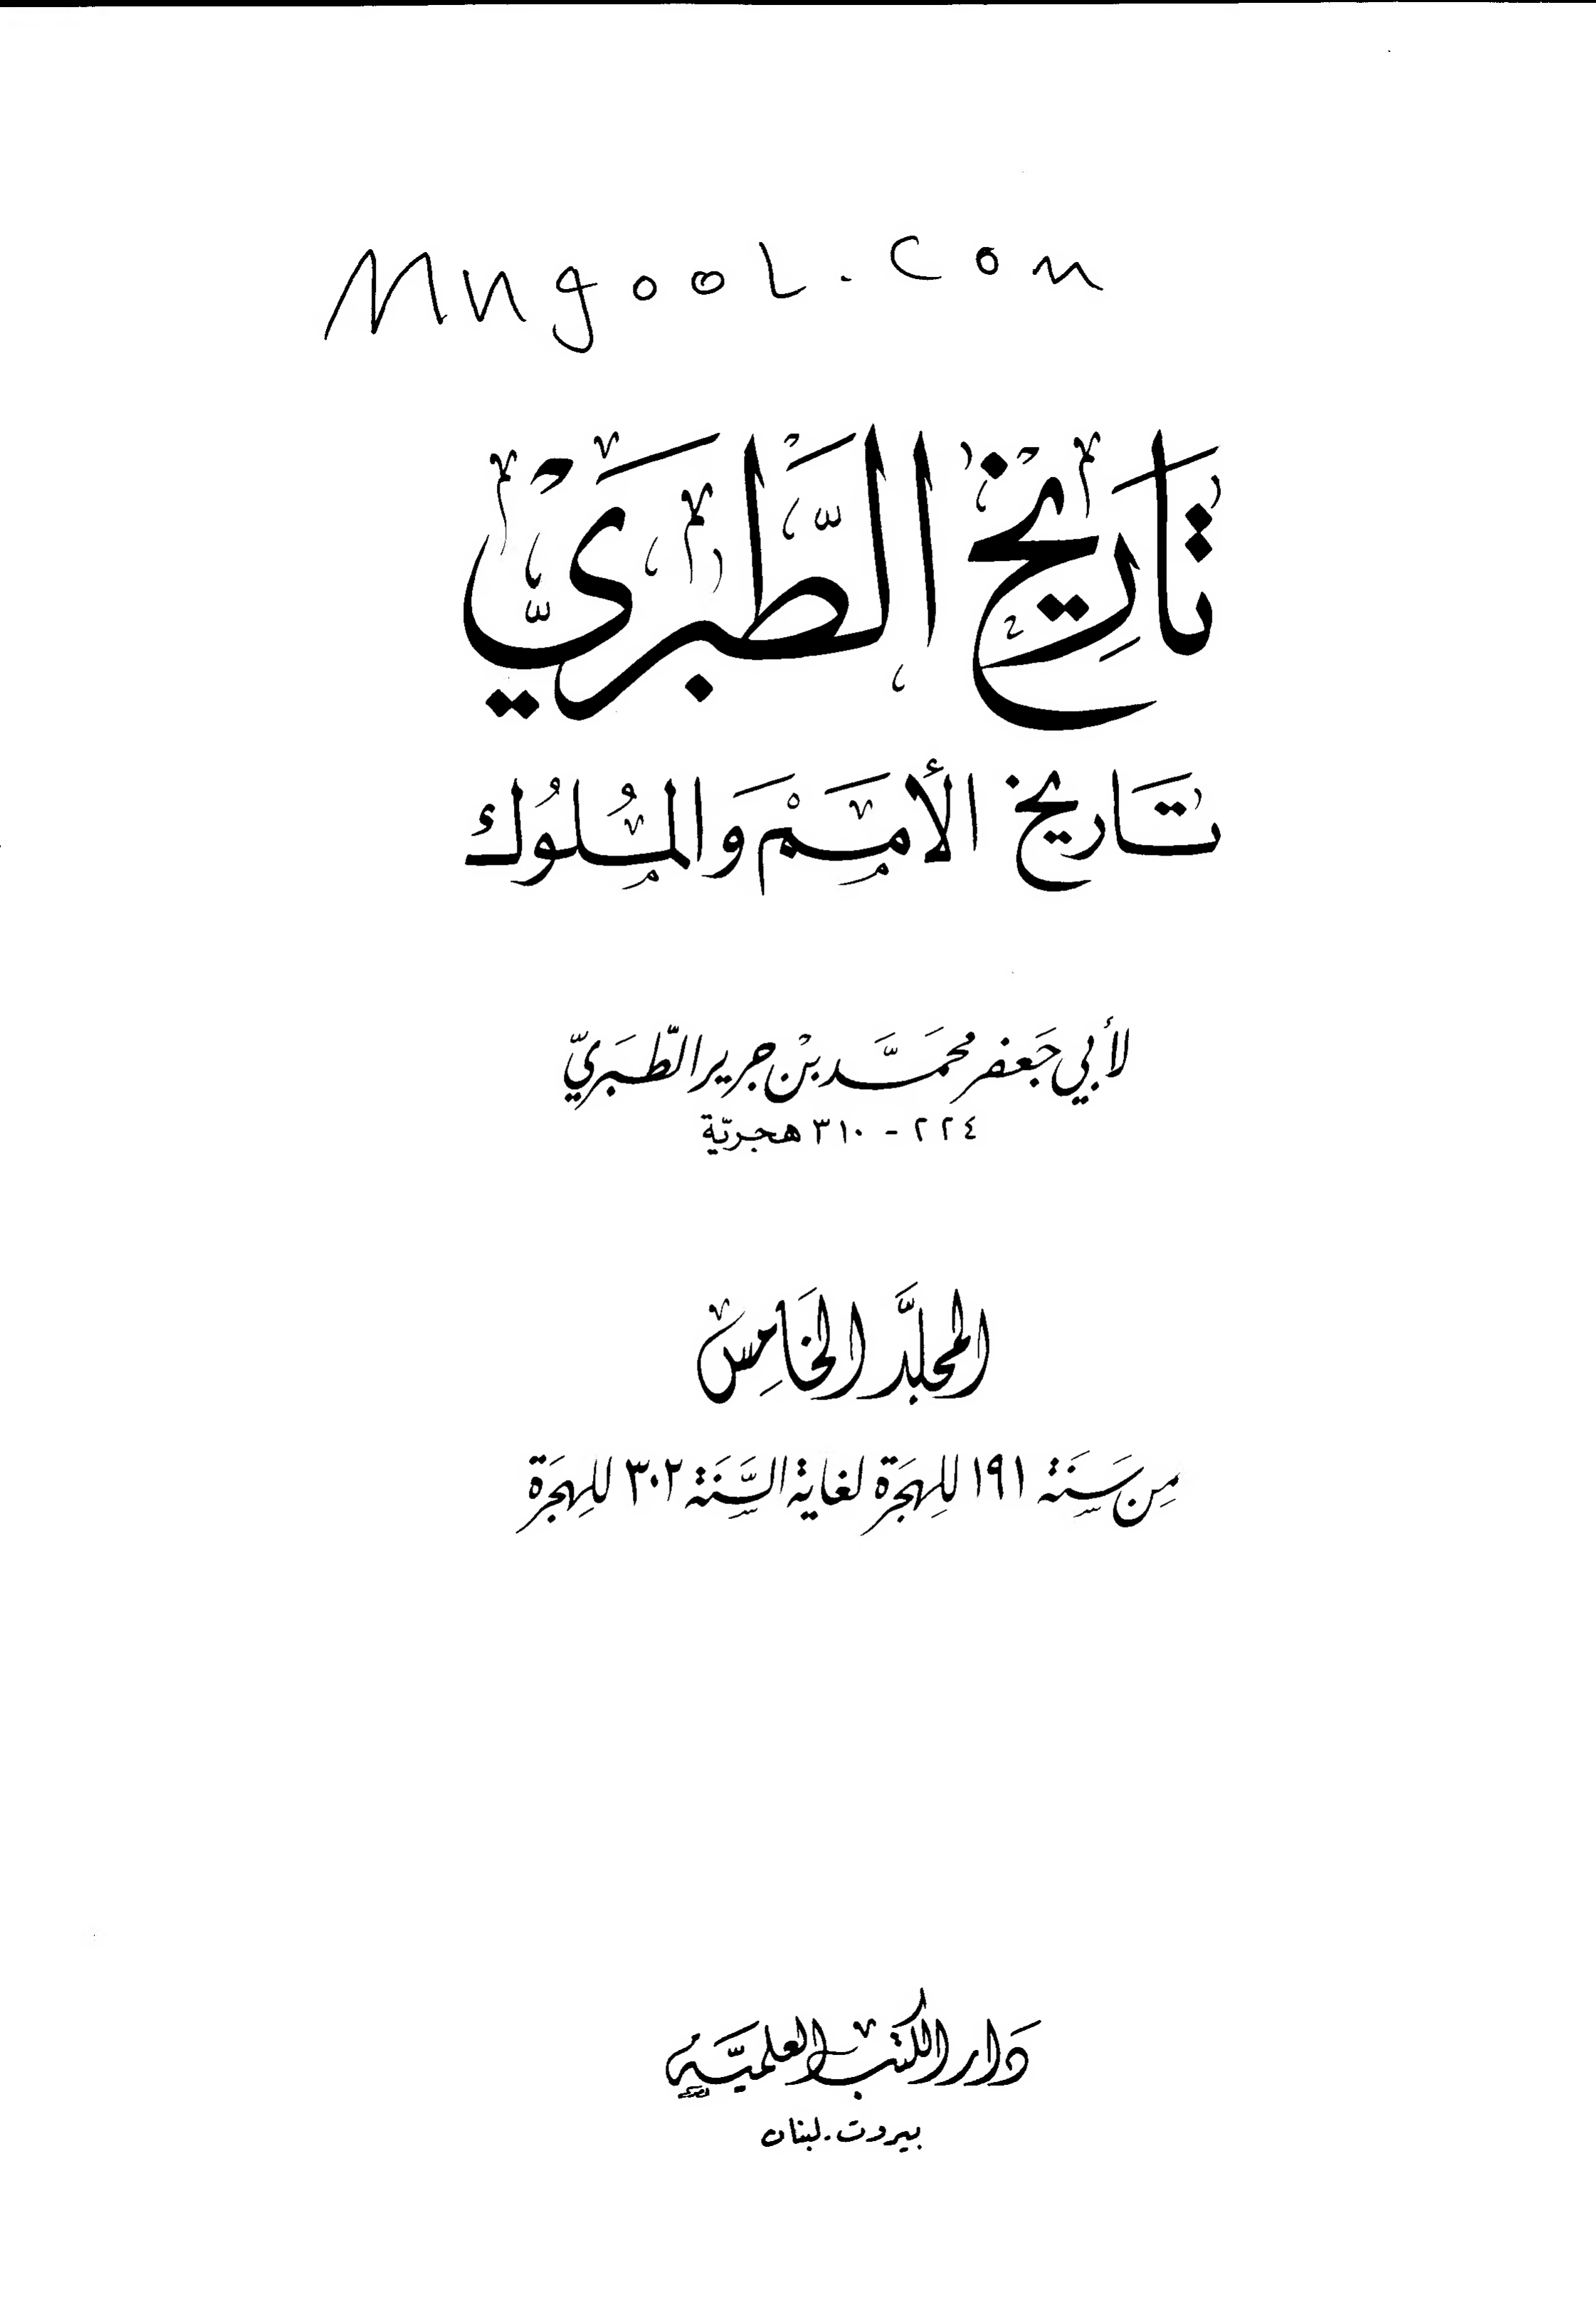 Mngool.com
تَارِيخُ الطَّبَرِيّ
تَاريخ الأُمَمِ وَالمُلُوك
لأبي جَعفر محمَّد بن جرير الطَّبَريّ
٢٢٤ - ٣١٠ هجريّة
المجلَّد الخَامِس
مِن سَنَة ١٩١ للهِجَرة لغاية السَّنَة ٣٠٢ للهِجَرة
دَار الكتب العلميَّة
بيروت - لبنان